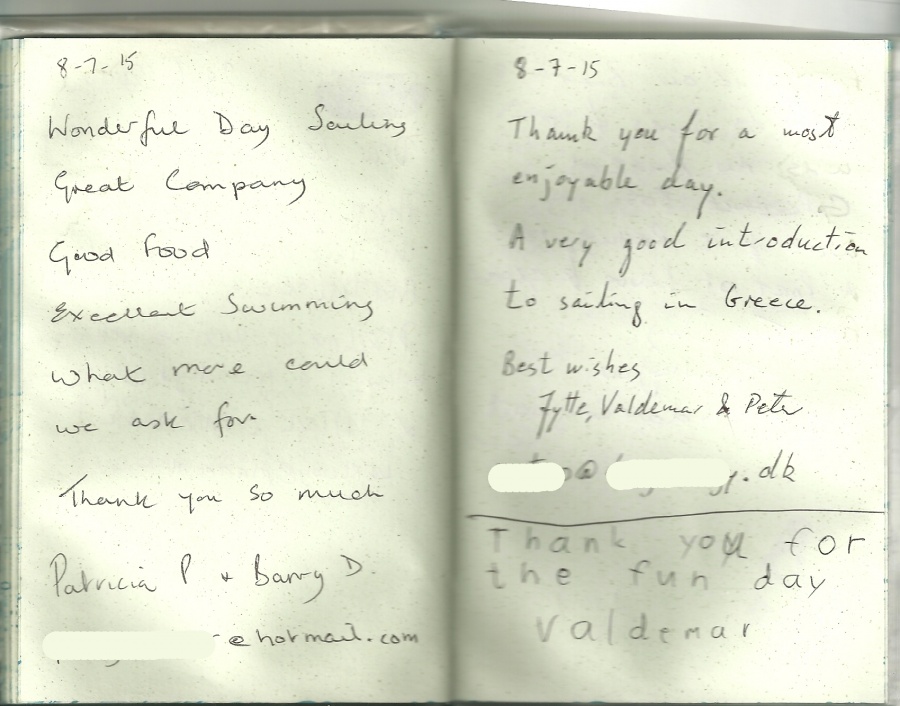 8-7-15
Wonderful Day Sailing
Great Company
Good Food
Excellent Swimming
What more could
we ask for
Thank you so much
Patricia P + Barry D.
@hotmail.com
8-7-15
Thank you for a most
enjoyable day.
A very good introduction
to sailing in Greece.
Best wishes
Jytte, Valdemar & Peter
@ .dk
Thank you for
the fun day
Valdemar